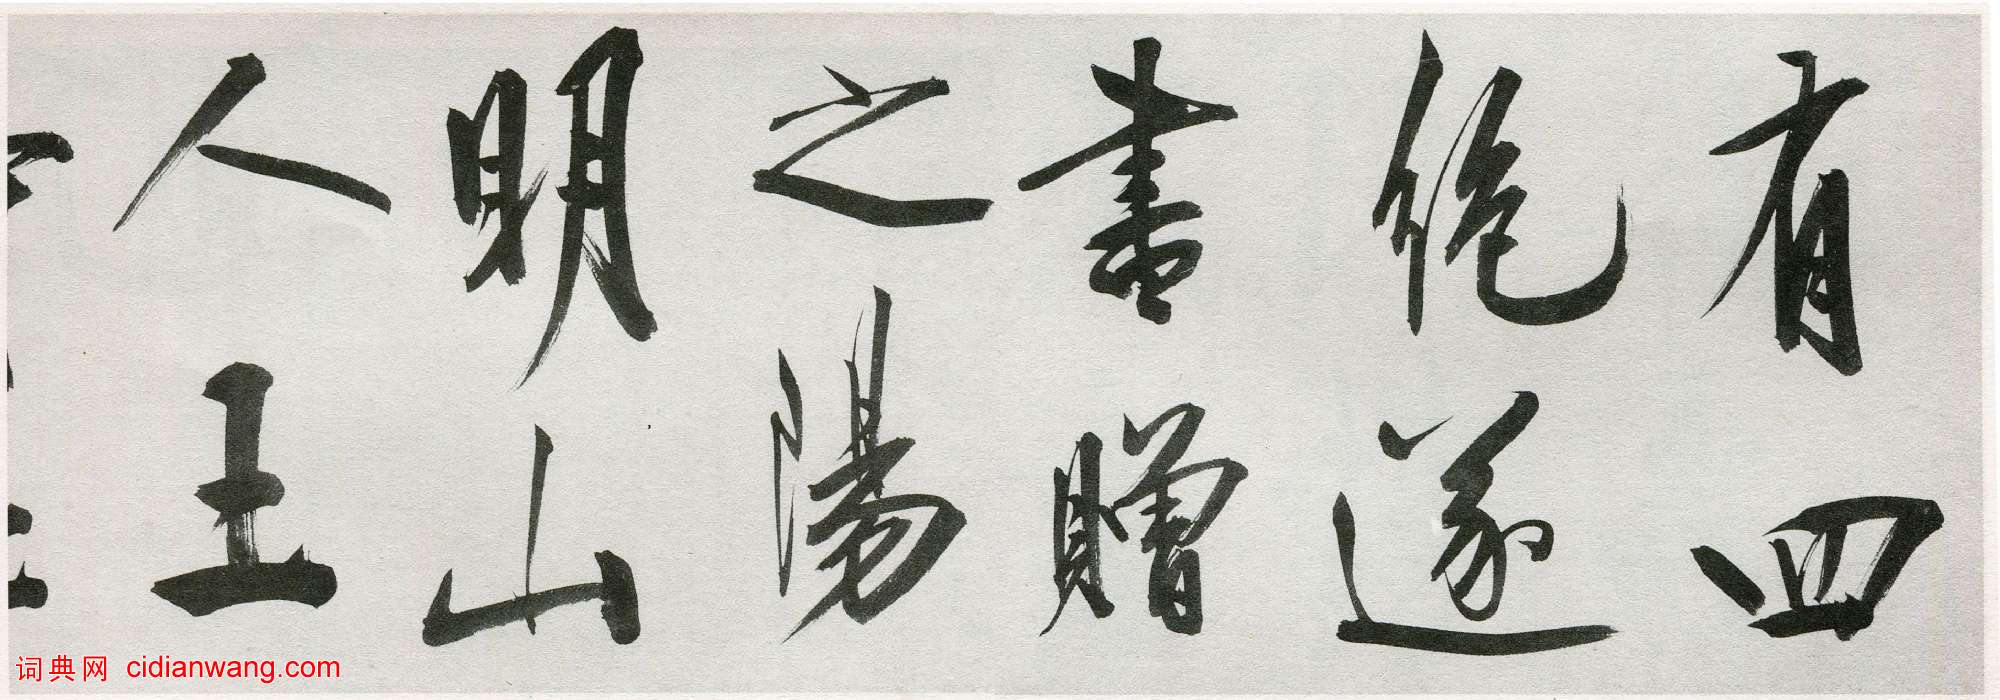 有四
絕遂
書贈
之陽
明山
人王
词典网 cidianwang.com